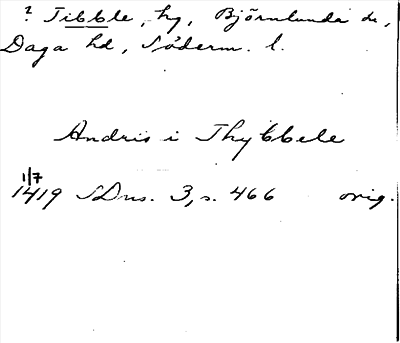 ? Tibble, hg, Björnlunda sn,
Daga hd, Söderm. l.
Andris i Thybbele
1/7
1419 SDns. 3, s. 466 orig.